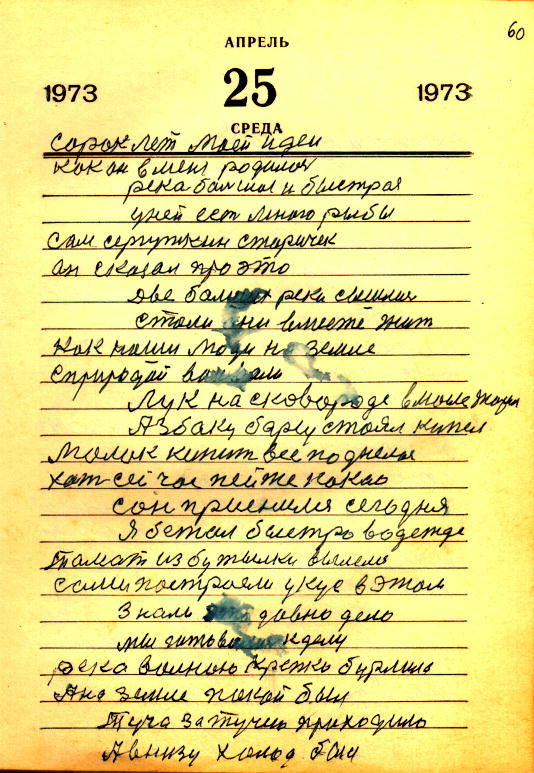 60
АПРЕЛЬ
1973 25 1973
СРЕДА
Сорок лет моей идеи
как он в меня родился
река балшая и быстрая
уней ест много рыбы
сам сергушкин старичек
ан сказал про это
две балших реки
стали ани вместе жит
как наши люди на земле
сприродай
Лук на сковороде в масле
Азбаку стоял купел
Малок кипит все поднелся
хат сейчас пей же какао
сон приснился сегодня
Я бежал быстро водежде
тамат из бутылки вылели
сами построели укус вэтом
Зналь давно дело
мы готоволи кделу
река валною крепко бурлила
Ана земле пакой был
Туча за тучей приходило
Авнизу холод был